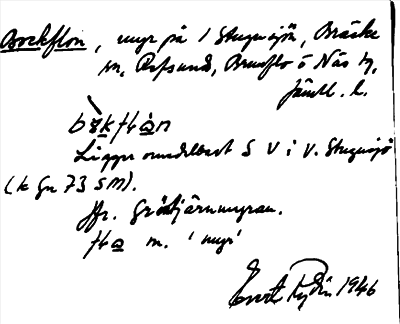 Bockflon, myr på / Stugusjön, Bräcke
m, Refsund, Brunflo o Näs tg,
Jämtl. l.
bòkflɷn
Ligger omedelbart S V i V. Stugusjö
(k Gr 73 SM).
Jfr. Grästjärnmyran.
flɷ m. 'myr'
1946